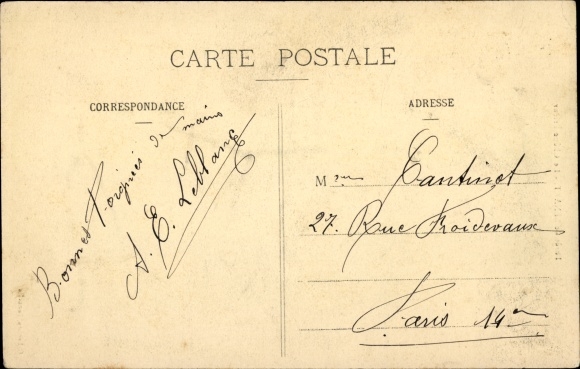 CARTE POSTALE
CORRESPONDANCE
Bonnes Poignées de mains
A. E. Leblanc
ADRESSE
Mme Tantinet
27. Rue Froidevaux
Paris 14e